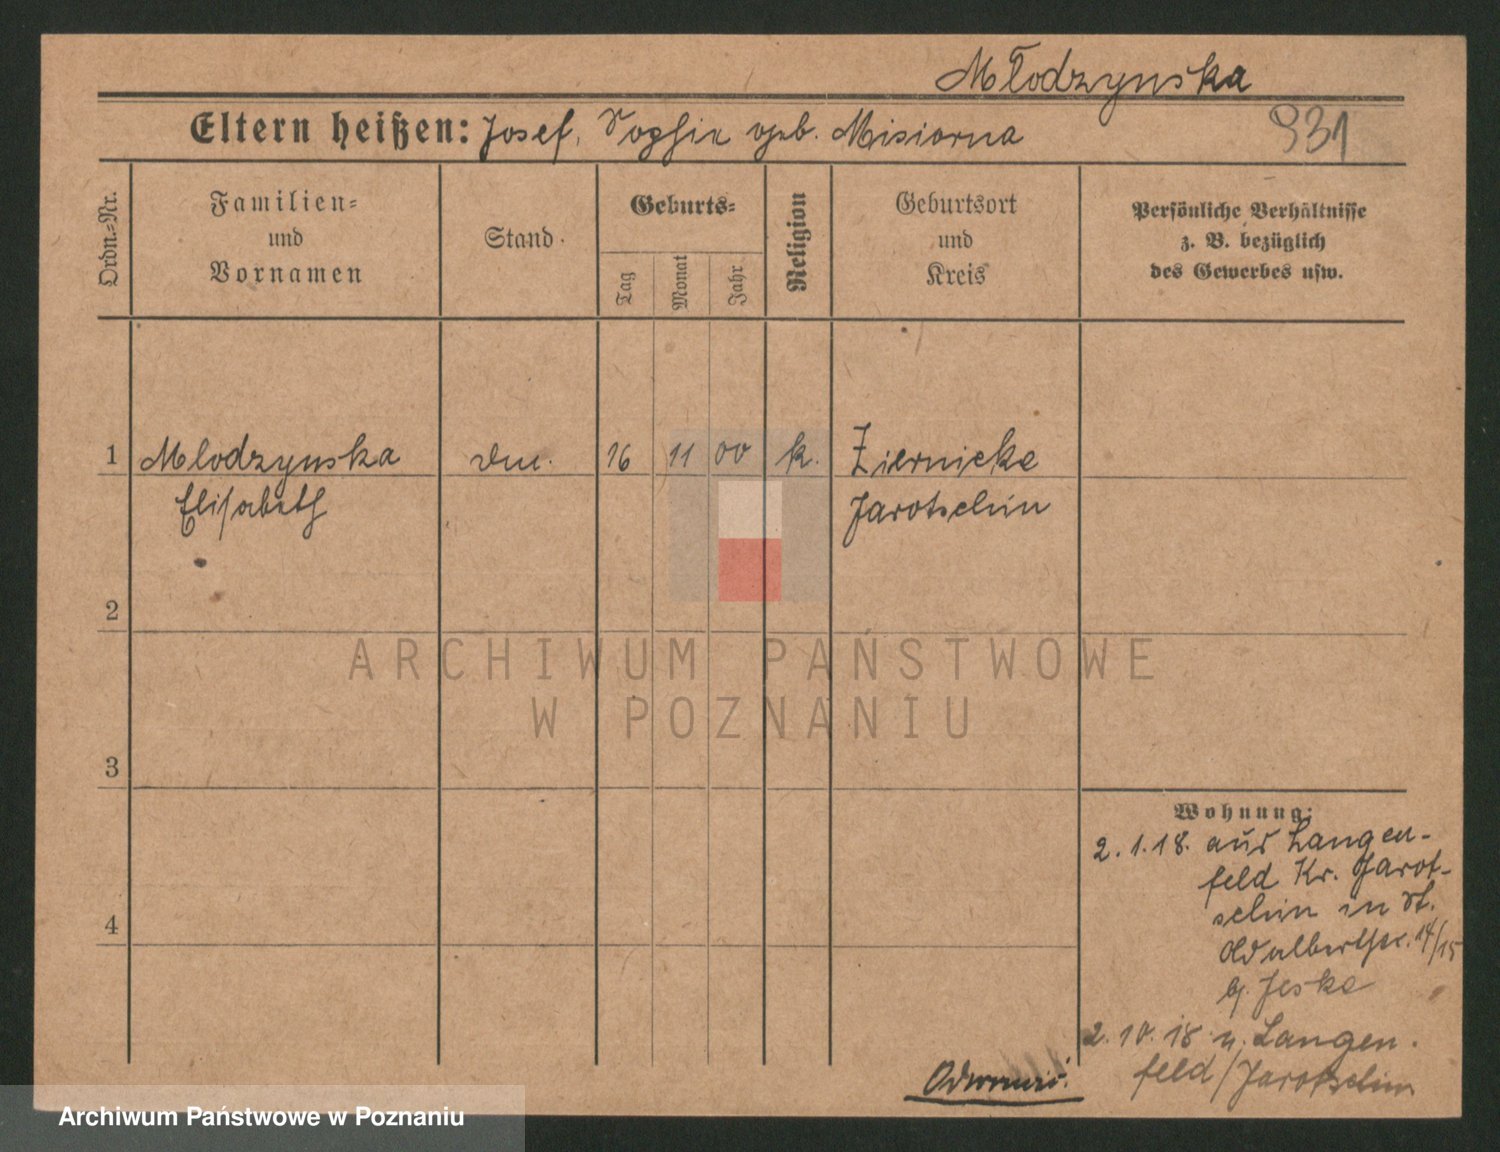 Młodzynska
931
Eltern heißen: Josef, Sophie geb. Misiorna
Ordn.-Nr.
Familien-
und
Vornamen
Stand.
Geburts-
Tag
Monat
Jahr
Religion
Geburtsort
und
Kreis
Persönliche Verhältnisse
z. B. bezüglich
des Gewerbes usw.
1 Mlodzynska 16 11 00 k. Ziernicke
Elisabeth Jarotschin
2
3
4
Wohnung:
2.1.18. aus Langen-
feld Kr. Jarot-
schin in St.
Odalbertstr. 14/15
b. Jeske
2.10.18 n. Langen-
feld/Jarotschin
Odwrócić.
ARCHIWUM PAŃSTWOWE
W POZNANIU
Archiwum Państwowe w Poznaniu